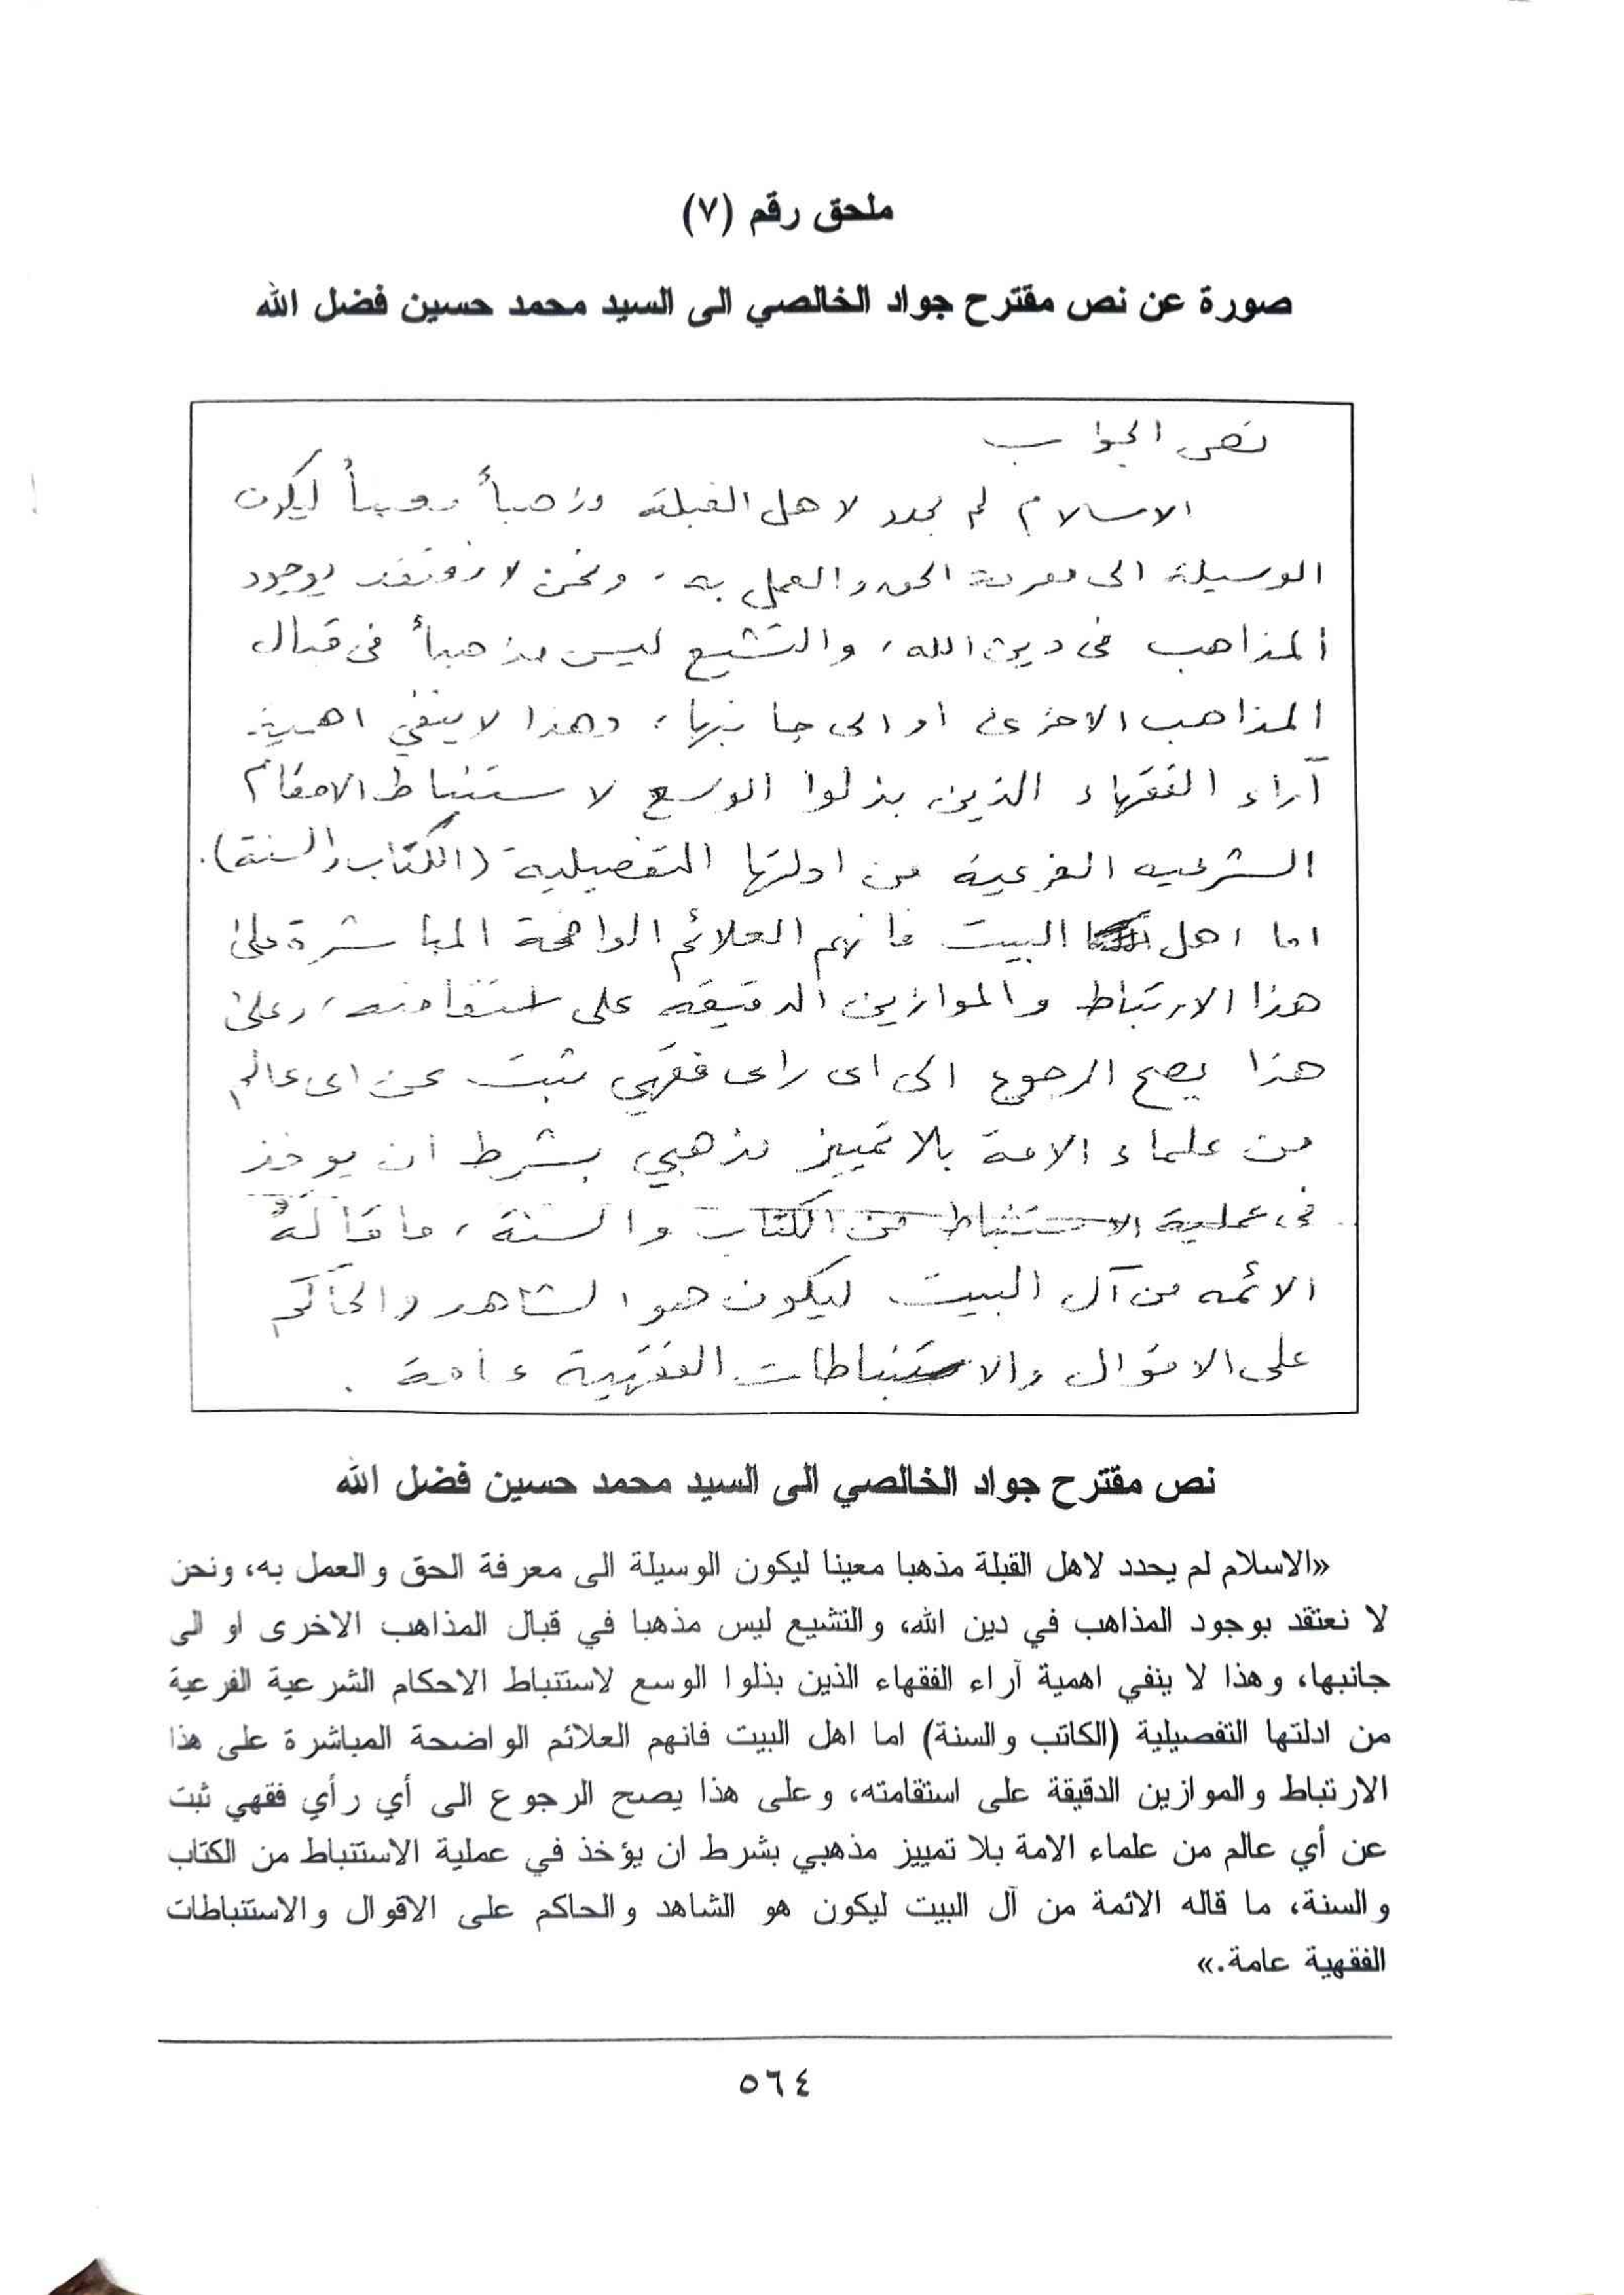 ملحق رقم (٧)
صورة عن نص مقترح جواد الخالصي الى السيد محمد حسين فضل الله
نص الجواب
الاسلام لم يحدد لاهل القبلة مذهباً معيناً ليكون
الوسيلة الى معرفة الحق والعمل به، ونحن لا نعتقد بوجود
المذاهب في دين الله، والتشيع ليس مذهباً في قبال
المذاهب الاخرى او الى جانبها، وهذا لا ينفي اهمية
آراء الفقهاء الذين بذلوا الوسع لاستنباط الاحكام
الشرعيه الفرعية من ادلتها التفصيلية (الكتاب والسنة).
اما اهل البيت فانهم العلائم الواضحة المباشرة على
هذا الارتباط والموازين الدقيقه على استقامته، وعلى
هذا يصح الرجوع الى اى راى فقهي ثبت عن اى عالم
من علماء الامة بلا تمييز مذهبي بشرط ان يوخذ
في عملية الاستنباط من الكتاب والسنة، ما قاله
الائمه من آل البيت ليكون هو الشاهد والحاكم
على الاقوال والاستنباطات الفقهية عامة.
نص مقترح جواد الخالصي الى السيد محمد حسين فضل الله
«الاسلام لم يحدد لاهل القبلة مذهبا معينا ليكون الوسيلة الى معرفة الحق والعمل به، ونحن
لا نعتقد بوجود المذاهب في دين الله، والتشيع ليس مذهبا في قبال المذاهب الاخرى او الى
جانبها، وهذا لا ينفي اهمية آراء الفقهاء الذين بذلوا الوسع لاستنباط الاحكام الشرعية الفرعية
من ادلتها التفصيلية (الكاتب والسنة) اما اهل البيت فانهم العلائم الواضحة المباشرة على هذا
الارتباط والموازين الدقيقة على استقامته، وعلى هذا يصح الرجوع الى أي رأي فقهي ثبت
عن أي عالم من علماء الامة بلا تمييز مذهبي بشرط ان يؤخذ في عملية الاستنباط من الكتاب
والسنة، ما قاله الائمة من آل البيت ليكون هو الشاهد والحاكم على الاقوال والاستنباطات
الفقهية عامة.»
٥٦٤